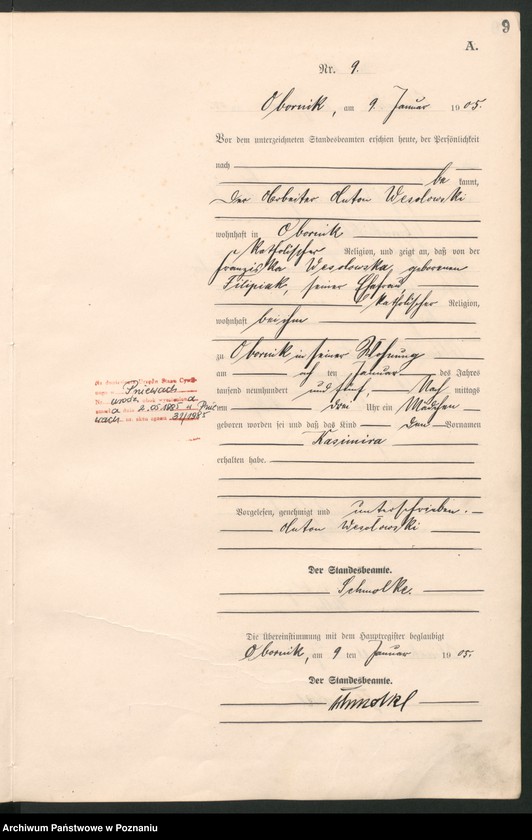 9
A.
Nr. 9.
Obornik, am 9. Januar 1905.
Vor dem unterzeichneten Standesbeamten erschien heute, der Persönlichkeit
nach
be kannt,
der Arbeiter Anton Wesolowski
wohnhaft in Obornik
katholischer Religion, und zeigt an, daß von der
Franziska Wesolowska, geborenen
Filipiak, seiner Ehefrau,
katholischer Religion,
wohnhaft bei ihm
zu Obornik in seiner Wohnung
am ten Januar des Jahres
tausend neunhundert und fünf, Nach mittags
um drei Uhr ein Mädchen
geboren worden sei und daß das Kind den Vornamen
Kasimira
erhalten habe.
Vorgelesen, genehmigt und unterschrieben.
Anton Wesolowski
Der Standesbeamte.
Schmolke.
Die Übereinstimmung mit dem Hauptregister beglaubigt
Obornik, am 9 ten Januar 1905.
Der Standesbeamte.
Schmolke
Urzędu Stanu Cywil-
Pniewach
2.05.1985 w Pnie
wach nr. aktu zgonu 39/1985
Archiwum Państwowe w Poznaniu